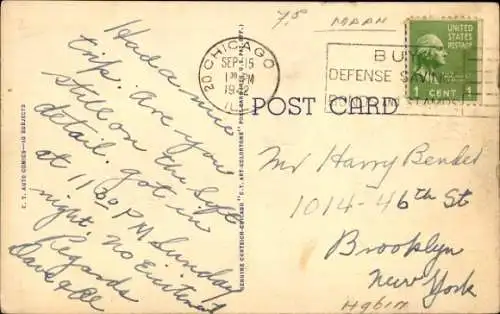 7.5 MAAN
CHICAGO
20
SEP 15
PM
1942
ILL
BUY
DEFENSE SAVINGS
BONDS AND STAMPS
UNITED
STATES
POSTAGE
1 CENT 1
POST CARD
C. T. AUTO COMICS—10 SUBJECTS
GENUINE CURTEICH-CHICAGO "C.T. ART-COLORTONE" POST CARD
Had a nice
trip. Are you
still on the
detail. Got in
at 11:00 PM Sunday
night. No Excitement
Regards
Dave
Mr Harry Bender
1014-46th St
Brooklyn
New York